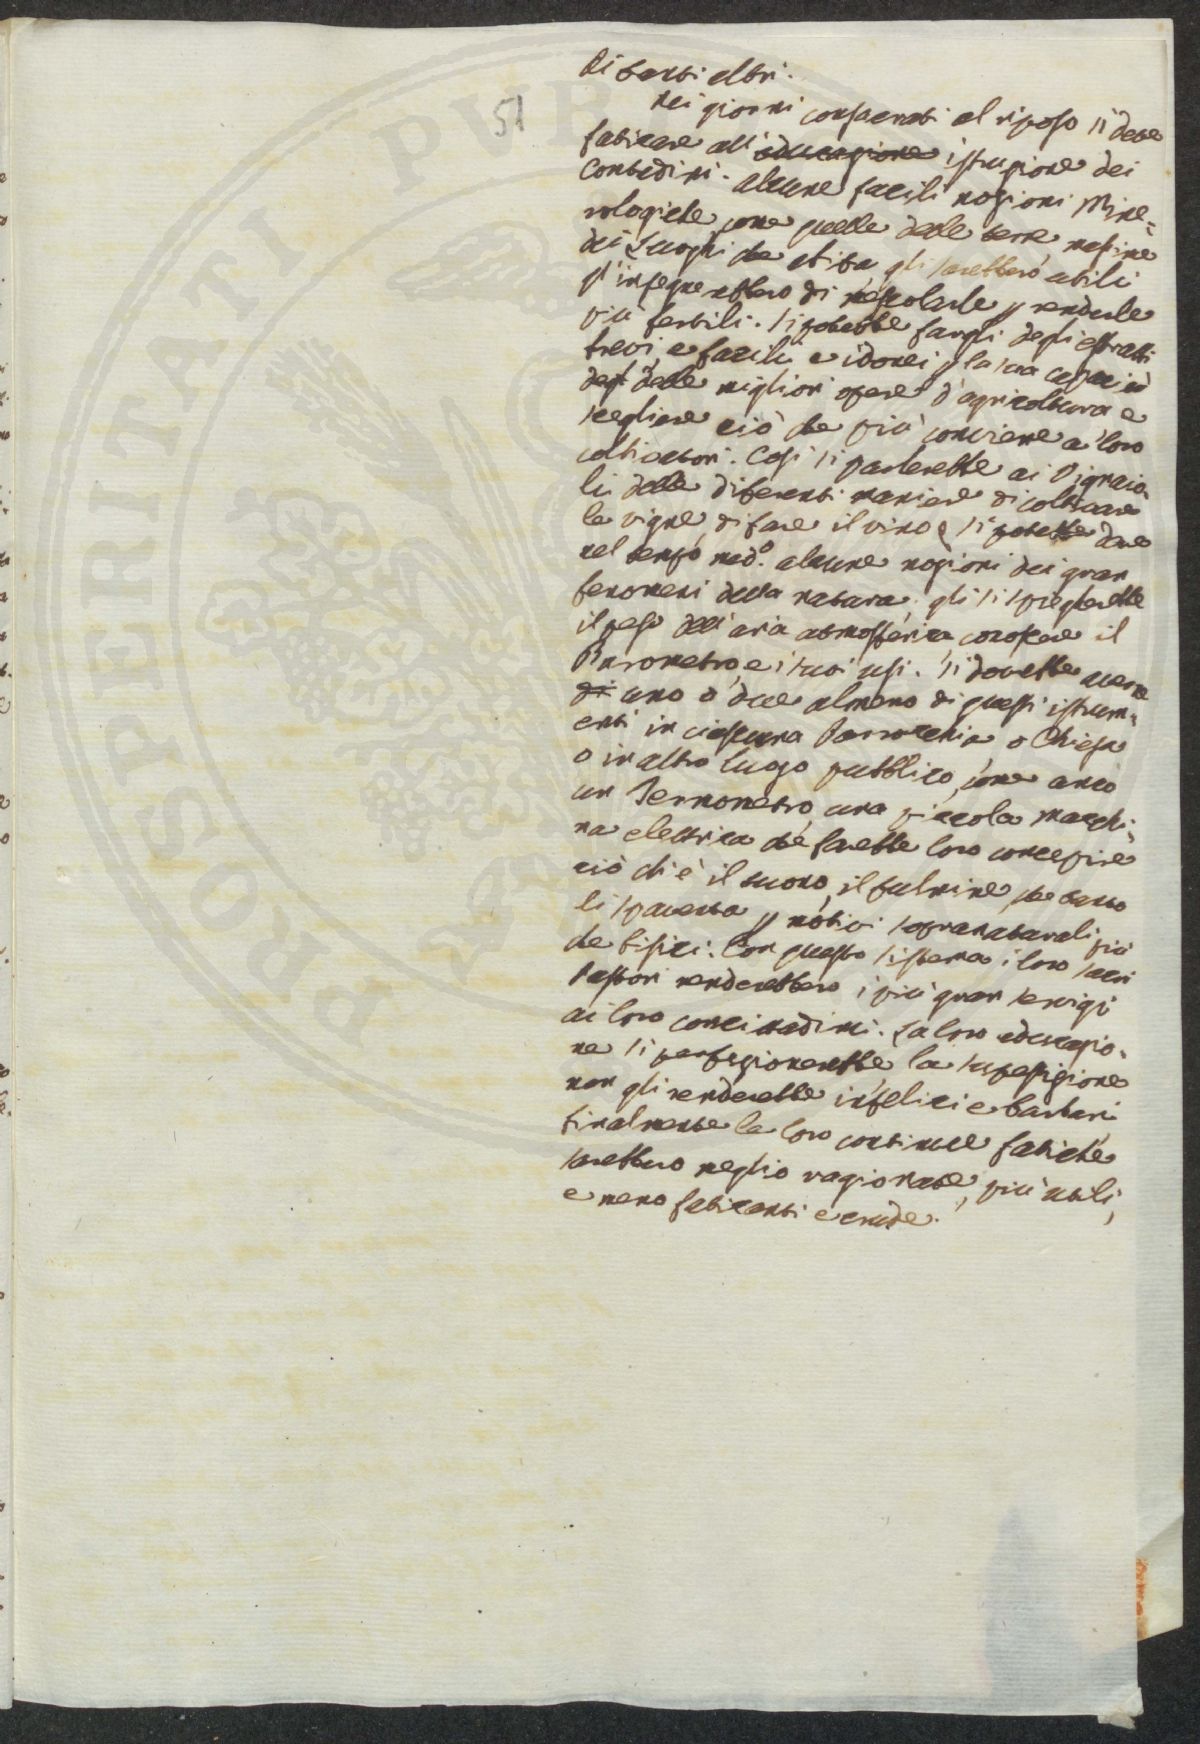 51
di tanti altri.
Nei giorni consacrati al riposo si deve
faticare all' educazione istruzione dei
Contadini. Alcune facili nozioni Mine-
rologiche come quelle delle terre massime
dei Luoghi che abita gli sarebbero utili
gl'insegnerebbero di mescolarle p renderle
più fertili. Si potrebbe fargli degli estratti
brevi, e facili e idonei p la sua capacità
degl delle migliori opere d'agricoltura e
scegliere ciò che più conviene a' loro
coltivatori. Così si parlerebbe ai Vignaio-
li delle differenti maniere di coltivare
le vigne, di fare il vino e si potrebbe dare
nel tempo med.o alcune nozioni dei gran
fenomeni della natura; gli si spiegherebbe
il peso dell'aria atmosferica conoscere il
Barometro, e i suoi usi. Si dovrebbe avere
di uno o due almeno di questi istrum-
enti in ciascuna Parrocchia o Chiesa
o in altro luogo pubblico, come anco
un Termometro, una piccola Macchi-
na elettrica che farebbe loro concepire
ciò ch'è il tuono, il fulmine, che tanto
li spaventa p motivi sopranaturali più
che fisici. Con questo sistema i loro sacri
Pastori renderebbero i più gran servigi
ai loro concittadini. La loro educazio-
ne si perfezionerebbe, la superstizione
non gli renderebbe infelici e barbari
finalmente le loro continue fatiche
sarebbero meglio ragionate, più utili,
e meno faticanti e crude.
PROSPERITATI PUB